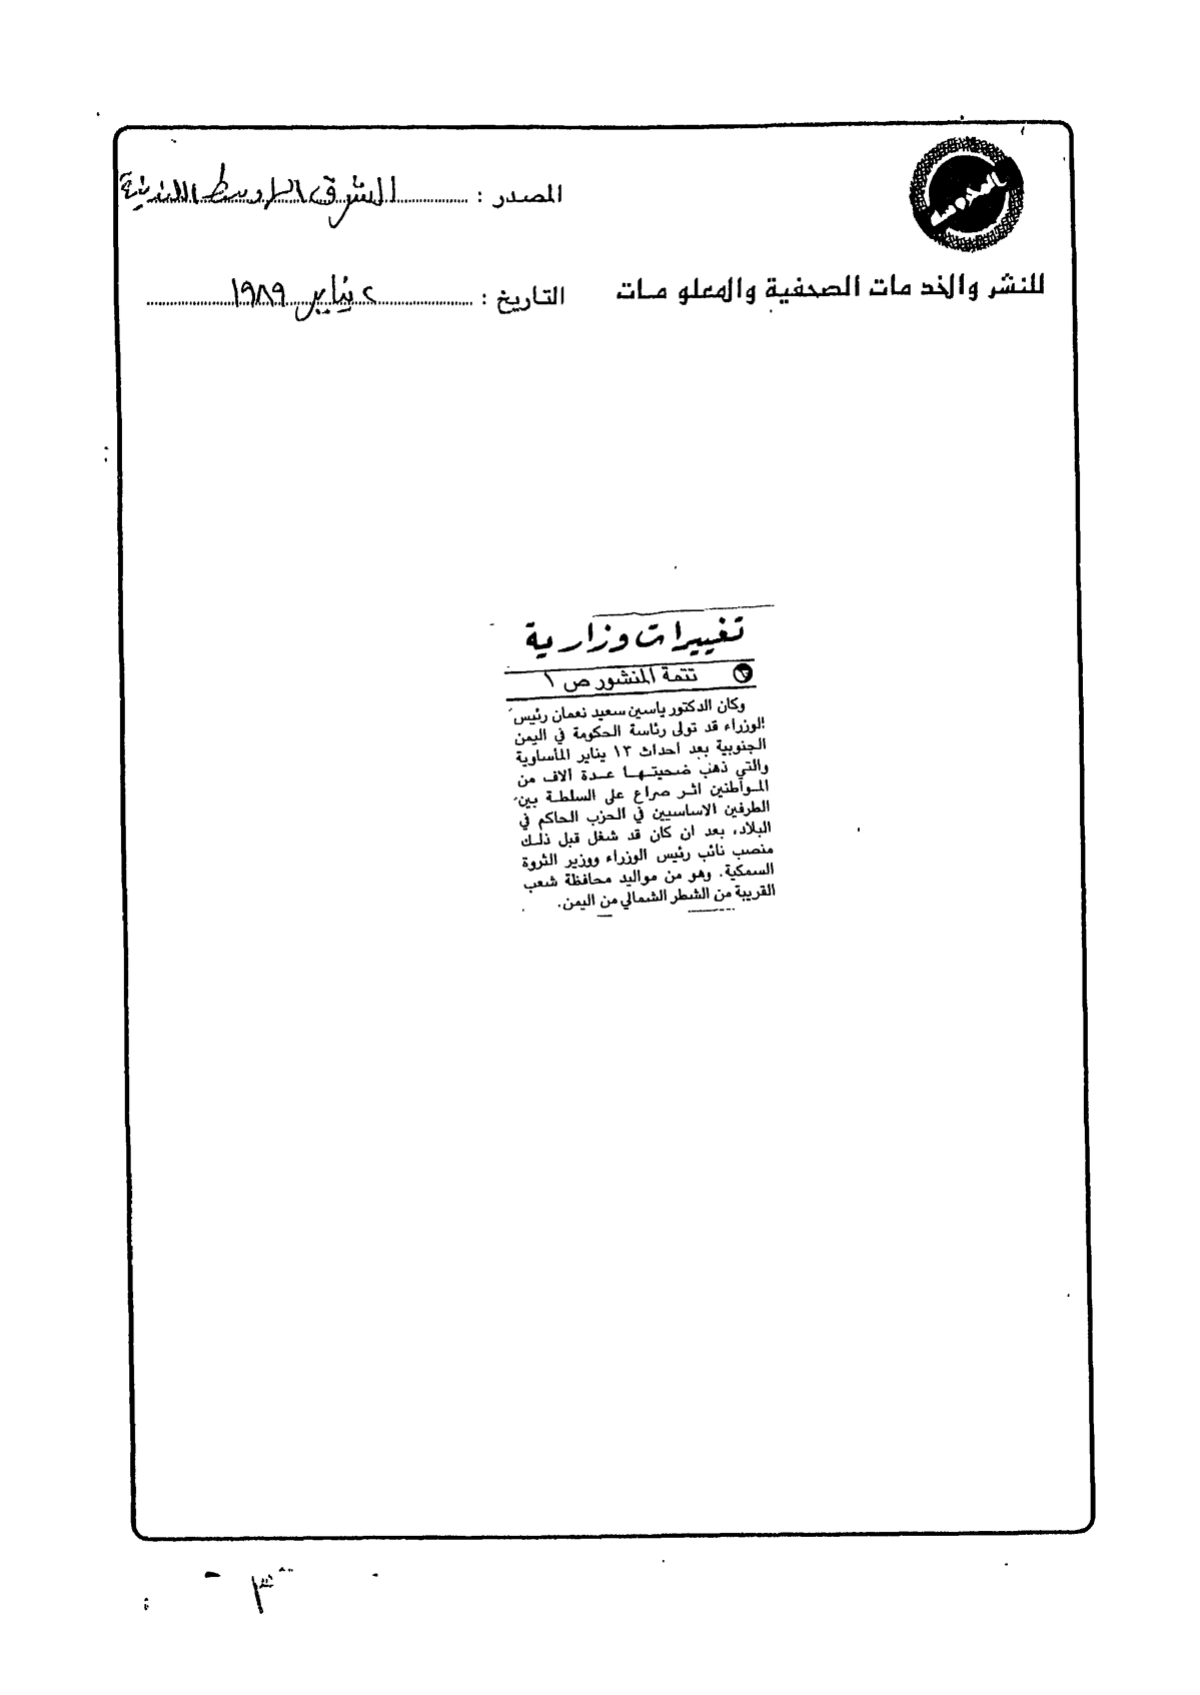 المصدر : الشرق الاوسط اللندنية
للنشر والخدمات الصحفية والمعلومات
التاريخ : ٢ يناير ١٩٨٩
تغييرات وزارية
تتمة المنشور ص ١
وكان الدكتور ياسين سعيد نعمان رئيس
الوزراء قد تولى رئاسة الحكومة في اليمن
الجنوبية بعد احداث ١٣ يناير المأساوية
والتي ذهب ضحيتها عدة آلاف من
المواطنين اثر صراع على السلطة بين
الطرفين الاساسيين في الحزب الحاكم في
البلاد، بعد ان كان قد شغل قبل ذلك
منصب نائب رئيس الوزراء ووزير الثروة
السمكية. وهو من مواليد محافظة شعب
القريبة من الشطر الشمالي من اليمن.
٣